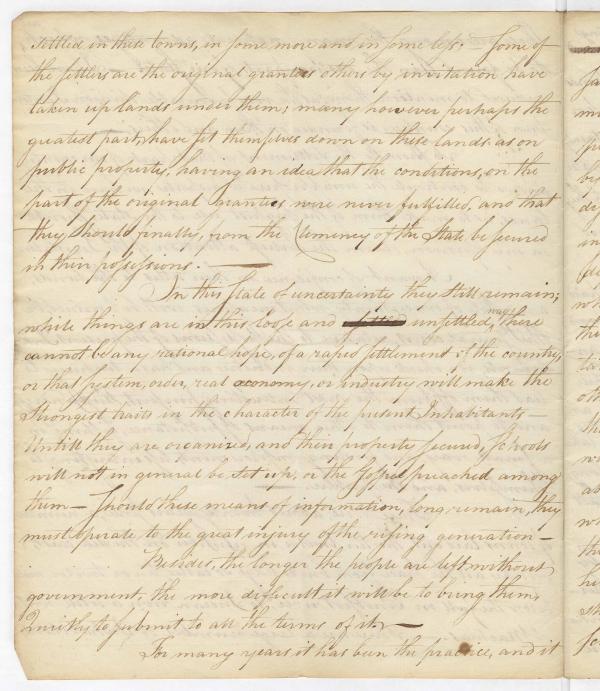 settled in these towns, in some more and in some less; — Some of
the settlers are the original grantees others by invitation have
taken up lands under them; many however perhaps the
greatest part, have set themselves down on these lands as on
public property, having an idea that the conditions, on the
part of the original grantees were never fulfilled, and that
they should finally, from the Clemency of the State be secured
in their possessions. —
In this state of uncertainty they still remain;
while things are in this loose and unsettled, way there
cannot be any rational hope, of a rapid settlement of the country
or that system, order, real oeconomy, or industry will make the
strongest traits in the character of the present Inhabitants —
Untill they are organized, and their property secured, Schools
will not in general be set up, or the Gospel preached among
them — Should these means of information, long remain, they
must operate to the great injury of the rising generation —
Besides, the longer the people are left without
government, the more difficult it will be to bring them,
Quietly to submit to all the terms of it —
For many years it has been the practice, and it